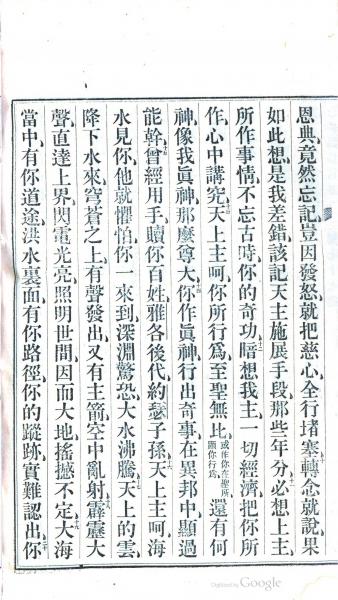 恩典竟然忘記豈因發怒就把慈心全行堵塞轉念就說果
如此想是我差錯該記天主施展手段那些年分必想上主
所作事情不忘古時你的奇功暗想我主一切經濟把你所
作心中講究天上主呵你所行爲至聖無比或作你在聖所顯你行爲還有何
神像我眞神那麼尊大你作眞神行出奇事在異邦中顯過
能幹曾經用手贖你百姓雅各後代約瑟子孫天上主呵海
水見你他就懼怕你一來到深淵驚恐大水沸騰天上的雲
降下水來穹蒼之上有聲發出又有主箭空中亂射霹靂大
聲直達上界閃電光亮照明世間因而大地搖撼不定大海
當中有你道途洪水裏面有你路徑你的蹤跡實難認出你
Digitized by Google